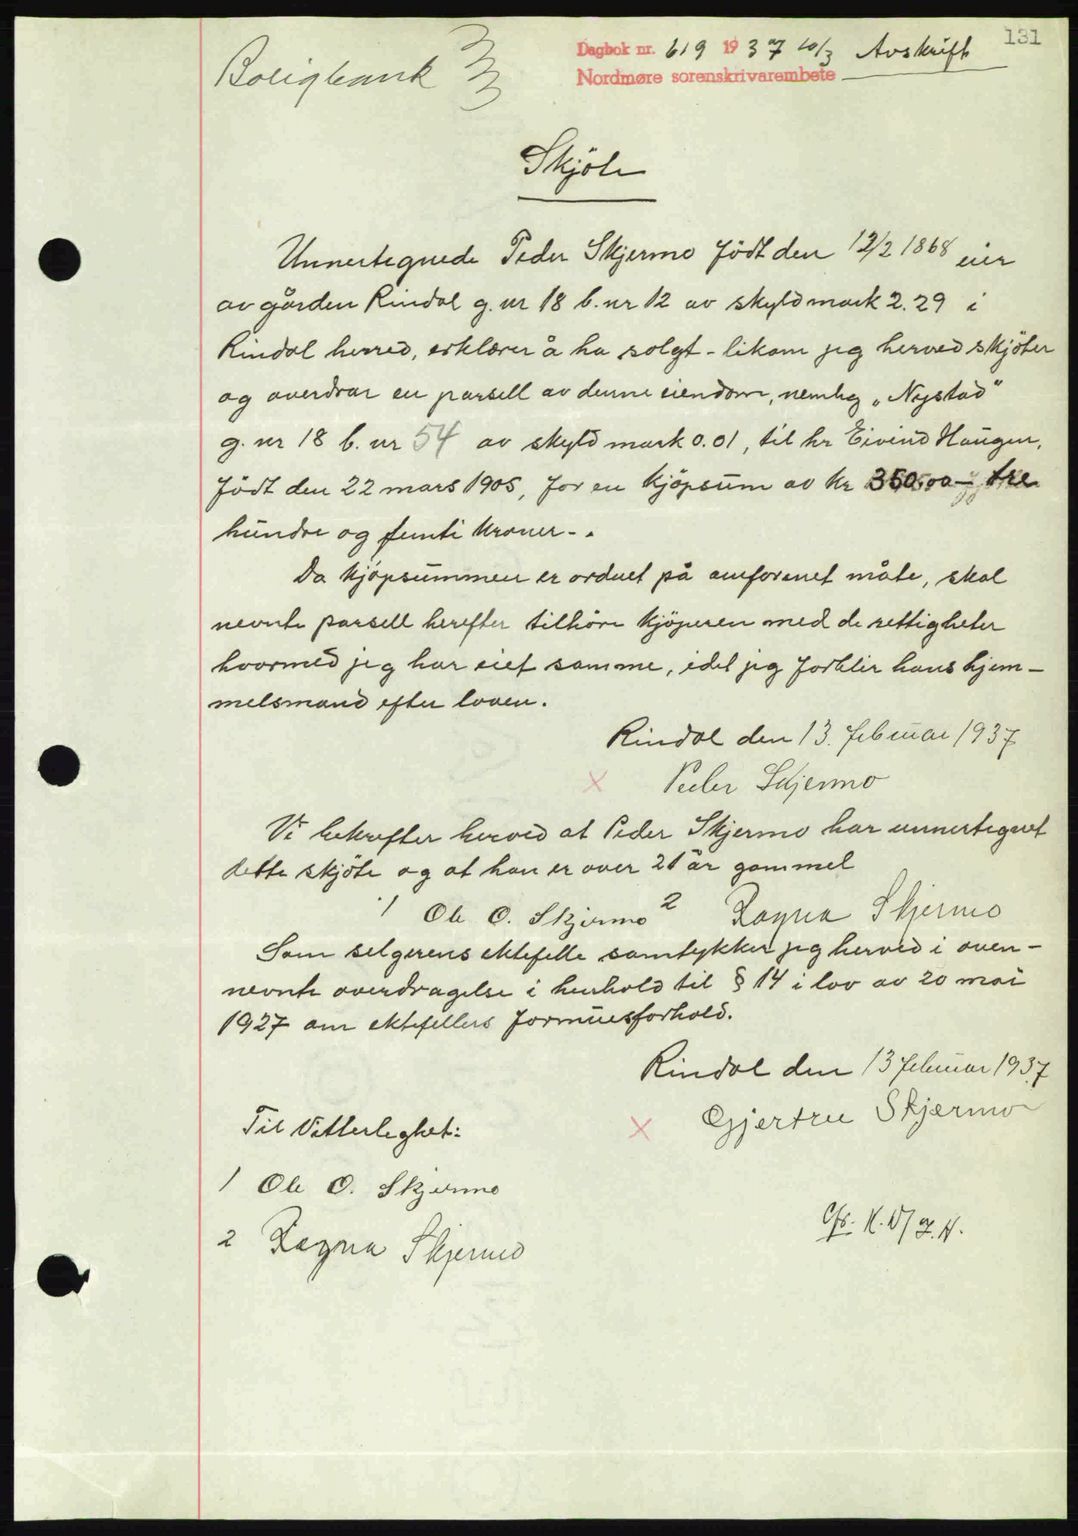 131
Boligbank
Dagbok nr. 619 1937 10/3 Avskrift
Nordmøre sorenskrivarembete
Skjöte
Unnertegnede Peder Skjermo födt den 12/2 1868 eier
av gården Rindal g. nr 18 b. nr 12 av skyldmark 2.29 i
Rindal herred, erklærer å ha solgt - likom jeg herved skjöter
og overdrar en parsell av denne eiendom, nemleg „Nystad"
g. nr 18 b. nr 54 av skyld mark 0.01, til hr Eivind Haugen,
födt den 22 mars 1905, for en kjöpsum av kr 350.00 — tre
hundre og femti kroner - .
Da kjöpsummen er ordnet på omforenet måte, skal
nevnte parsell herefter tilhöre kjöperen med de rettigheter
hvormed jeg har eiet samme, idet jeg forblir hans hjem-
melsmand efter loven.
Rindal den 13. februar 1937
x Peder Skjermo
Vi bekrefter herved at Peder Skjermo har unnertegnet
dette skjöte og at han er over 21 år gammel
1 Ole O. Skjermo 2 Ragna Skjermo
Som selgerens ektefelle samtykker jeg herved i oven-
nevnte overdragelse i henhold til § 14 i lov av 20 mai
1927 om ektefellers formuesforhold.
Rindal den 13 februar 1937
Til Vitterleghet:
x Gjertru Skjermo
1 Ole O. Skjermo
2 Ragna Skjermo